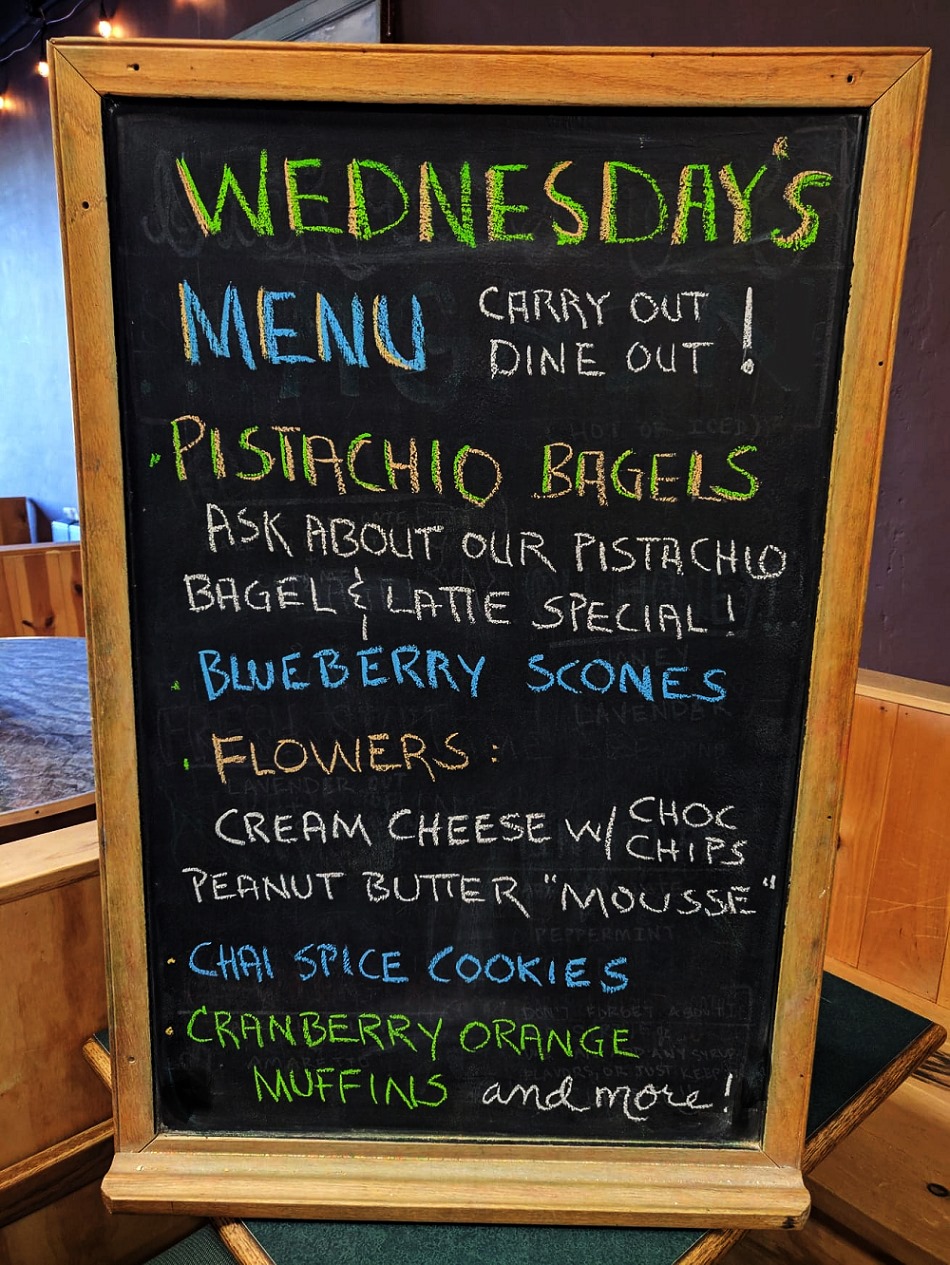 WEDNESDAY'S
MENU
CARRY OUT
DINE OUT !
PISTACHIO BAGELS
ASK ABOUT OUR PISTACHIO
BAGEL & LATTE SPECIAL!
BLUEBERRY SCONES
FLOWERS:
CREAM CHEESE W/ CHOC
CHIPS
PEANUT BUTTER "MOUSSE"
CHAI SPICE COOKIES
CRANBERRY ORANGE
MUFFINS and more!
(HOT OR ICED)
HONEY
LAVENDER
PEPPERMINT